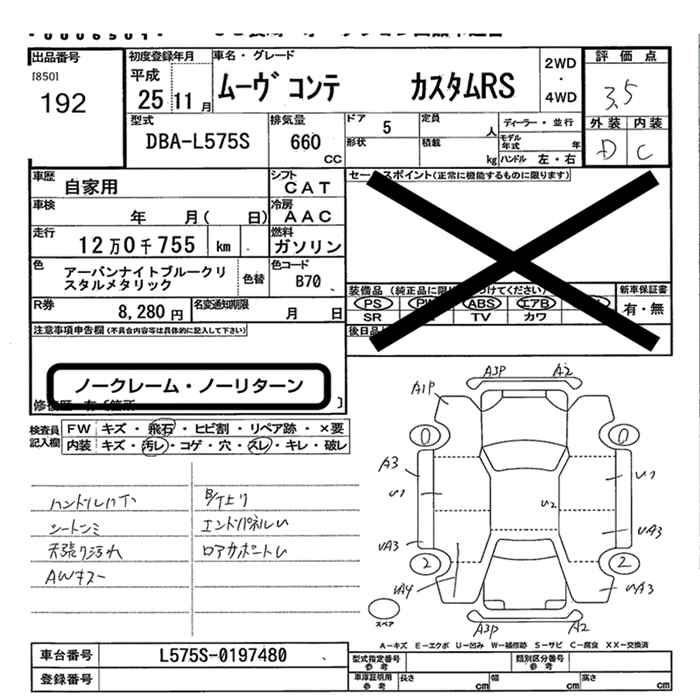 出品番号
[850]
192
初度登録年月
平成
25 11 月
車名・グレード
ムーヴ コンテ カスタムRS
2WD
・
4WD
評価点
3.5
外装 内装
D C
型式
DBA-L575S
排気量
660
CC
ドア
5
定員
人
形状
積載
kg
ディーラー・並行
モデル年式
年
ハンドル 左・右
車歴
自家用
シフト
C A T
車検
年 月( 日)
冷房
A A C
走行
12万0千755 km
燃料
ガソリン
色
アーバンナイトブルークリ
スタルメタリック
色替
色コード
B70
R券
8,280 円
名変通知期限
月 日
セールスポイント(正常に機能するものに限ります)
装備品
PS
ABS
エアB
SR
TV
カワ
新車保証書
有・無
注意事項申告欄 (不具合内容等は具体的に記入して下さい)
ノークレーム・ノーリターン
検査員
記入欄
FW キズ・飛石・ヒビ割・リペア跡・×要
内装 キズ・汚レ・コゲ・穴・スレ・キレ・破レ
シートシミ
天張り汚れ
AWキズ
エンドパネルU
A3P A2
A1P
0 0
A3
U1
U1
U2
UA3
UA3
2 2
UA4
UA3
スペア
A3P A2
A-キズ E-エクボ U-凹み W-補修跡 S-サビ C-腐食 XX-交換済
車台番号
L575S-0197480
登録番号
型式指定番号
参考
類別区分番号
参考
車庫証明用
参考
長さ
cm
幅
cm
高さ
cm